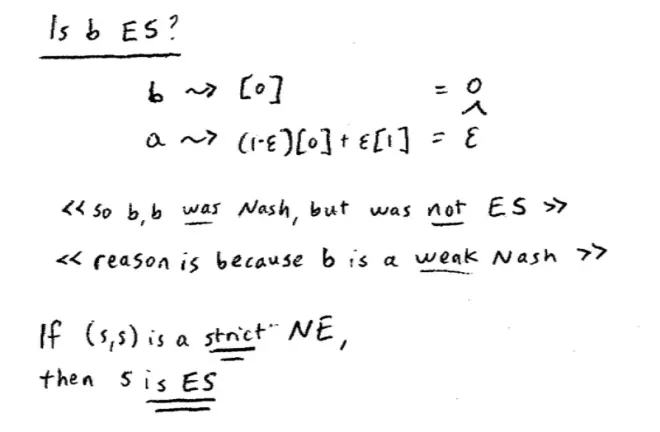 Is b ES?
b ⇝ [0] = 0
∧
a ⇝ (1-ε)[0] + ε[1] = ε
<< so b,b was Nash, but was not ES >>
<< reason is because b is a weak Nash >>
If (s,s) is a strict NE,
then s is ES